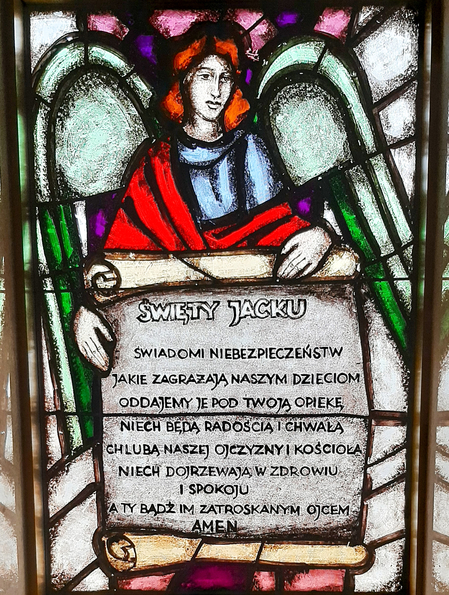 ŚWIĘTY JACKU
ŚWIADOMI NIEBEZPIECZEŃSTW
JAKIE ZAGRAŻAJĄ NASZYM DZIECIOM
ODDAJEMY JE POD TWOJĄ OPIEKĘ
NIECH BĘDĄ RADOŚCIĄ I CHWAŁĄ
CHLUBĄ NASZEJ OJCZYZNY I KOŚCIOŁA
NIECH DOJRZEWAJĄ W ZDROWIU
I SPOKOJU
A TY BĄDŹ IM ZATROSKANYM OJCEM
AMEN